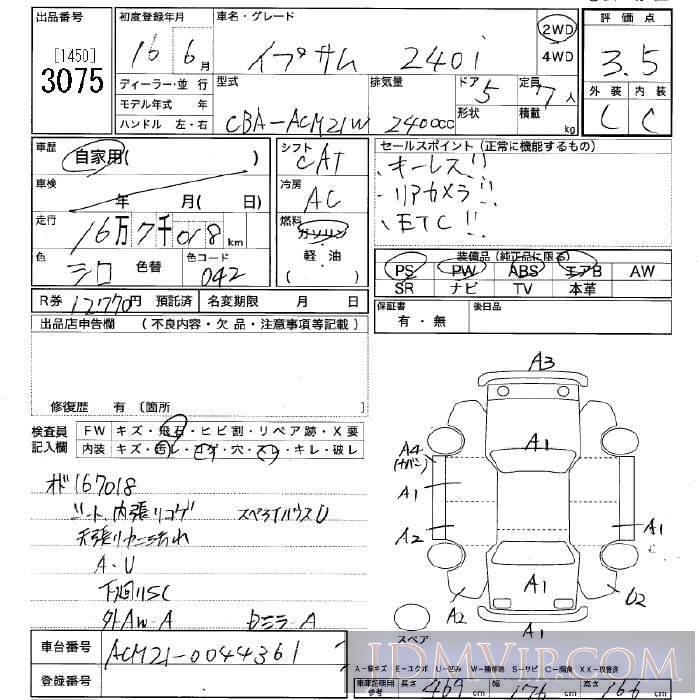 出品番号 初度登録年月 車名・グレード 2WD 評価点
[1450]
3075
16年 6月 イプサム 240i 4WD 3.5
ディーラー・並行 型式 排気量 ドア 5 定員 7人 外装 内装
モデル年式 年 形状 積載 C C
ハンドル 左・右 CBA-ACM21W 2400cc kg
車歴 自家用( ) シフト CAT セールスポイント(正常に機能するもの)
・キーレス!!
・リアカメラ!!
・ETC!!
車検 年 月( 日) 冷房 AC
走行 16万7千018km 燃料 ガソリン
軽・油
( )
色 シロ 色替 色コード 042
装備品(純正品に限る)
PS PW ABS エアB AW
SR ナビ TV 本革
R券 12770円 預託済 名変期限 月 日 保証書 後日品
有・無
出品店申告欄 (不良内容・欠品・注意事項等記載)
修復歴 有 〔箇所 〕
検査員 FW キズ・飛石・ヒビ割・リペア跡・X要
記入欄 内装 キズ・汚レ・コゲ・穴・スレ・キレ・破レ
オド167018
シート、内張りコゲ
天張りヤニ汚れ
A・U
下廻りSC
外AW-A
A3
A1
A4
A1
A2
A1
A2
A1
U2
A1
スペア
車台番号 ACM21-0044361
登録番号
A-線キズ E-エクボ U-凹み W-補修跡 S-サビ C-腐食 XX-取替済
車庫証明用 長さ 469cm 幅 176cm 高さ 166cm
参考
JDMVIP.COM